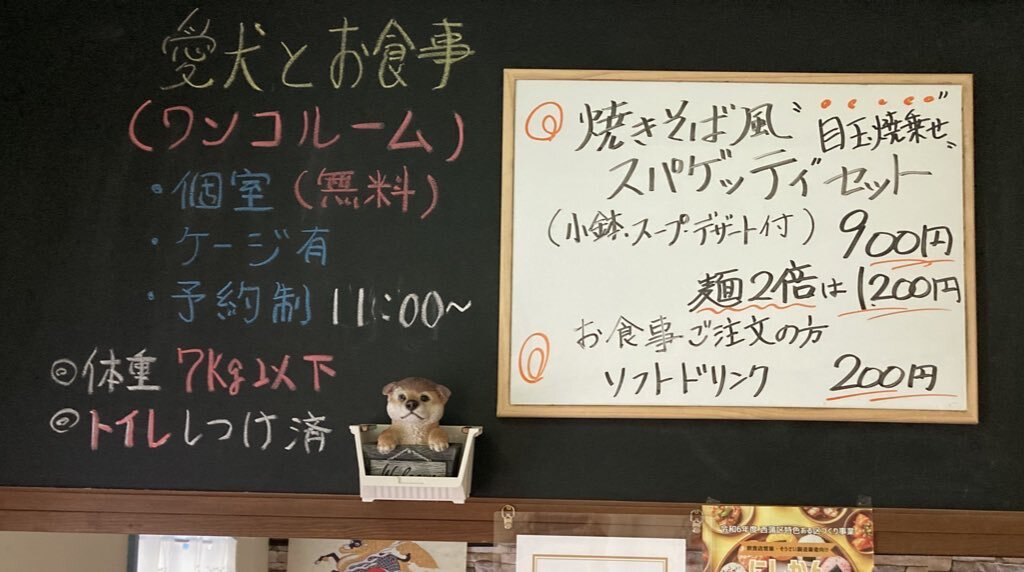 愛犬とお食事
(ワンコルーム)
・個室(無料)
・ケージ有
・予約制 11:00~
◎体重 7kg以下
◎トイレしつけ済
焼きそば風 目玉焼乗せ
スパゲッティセット
(小鉢・スープ・デザート付) 900円
麺2倍は1200円
お食事ご注文の方
ソフトドリンク 200円
令和6年度 西蒲区特色ある区づくり事業
にしかん